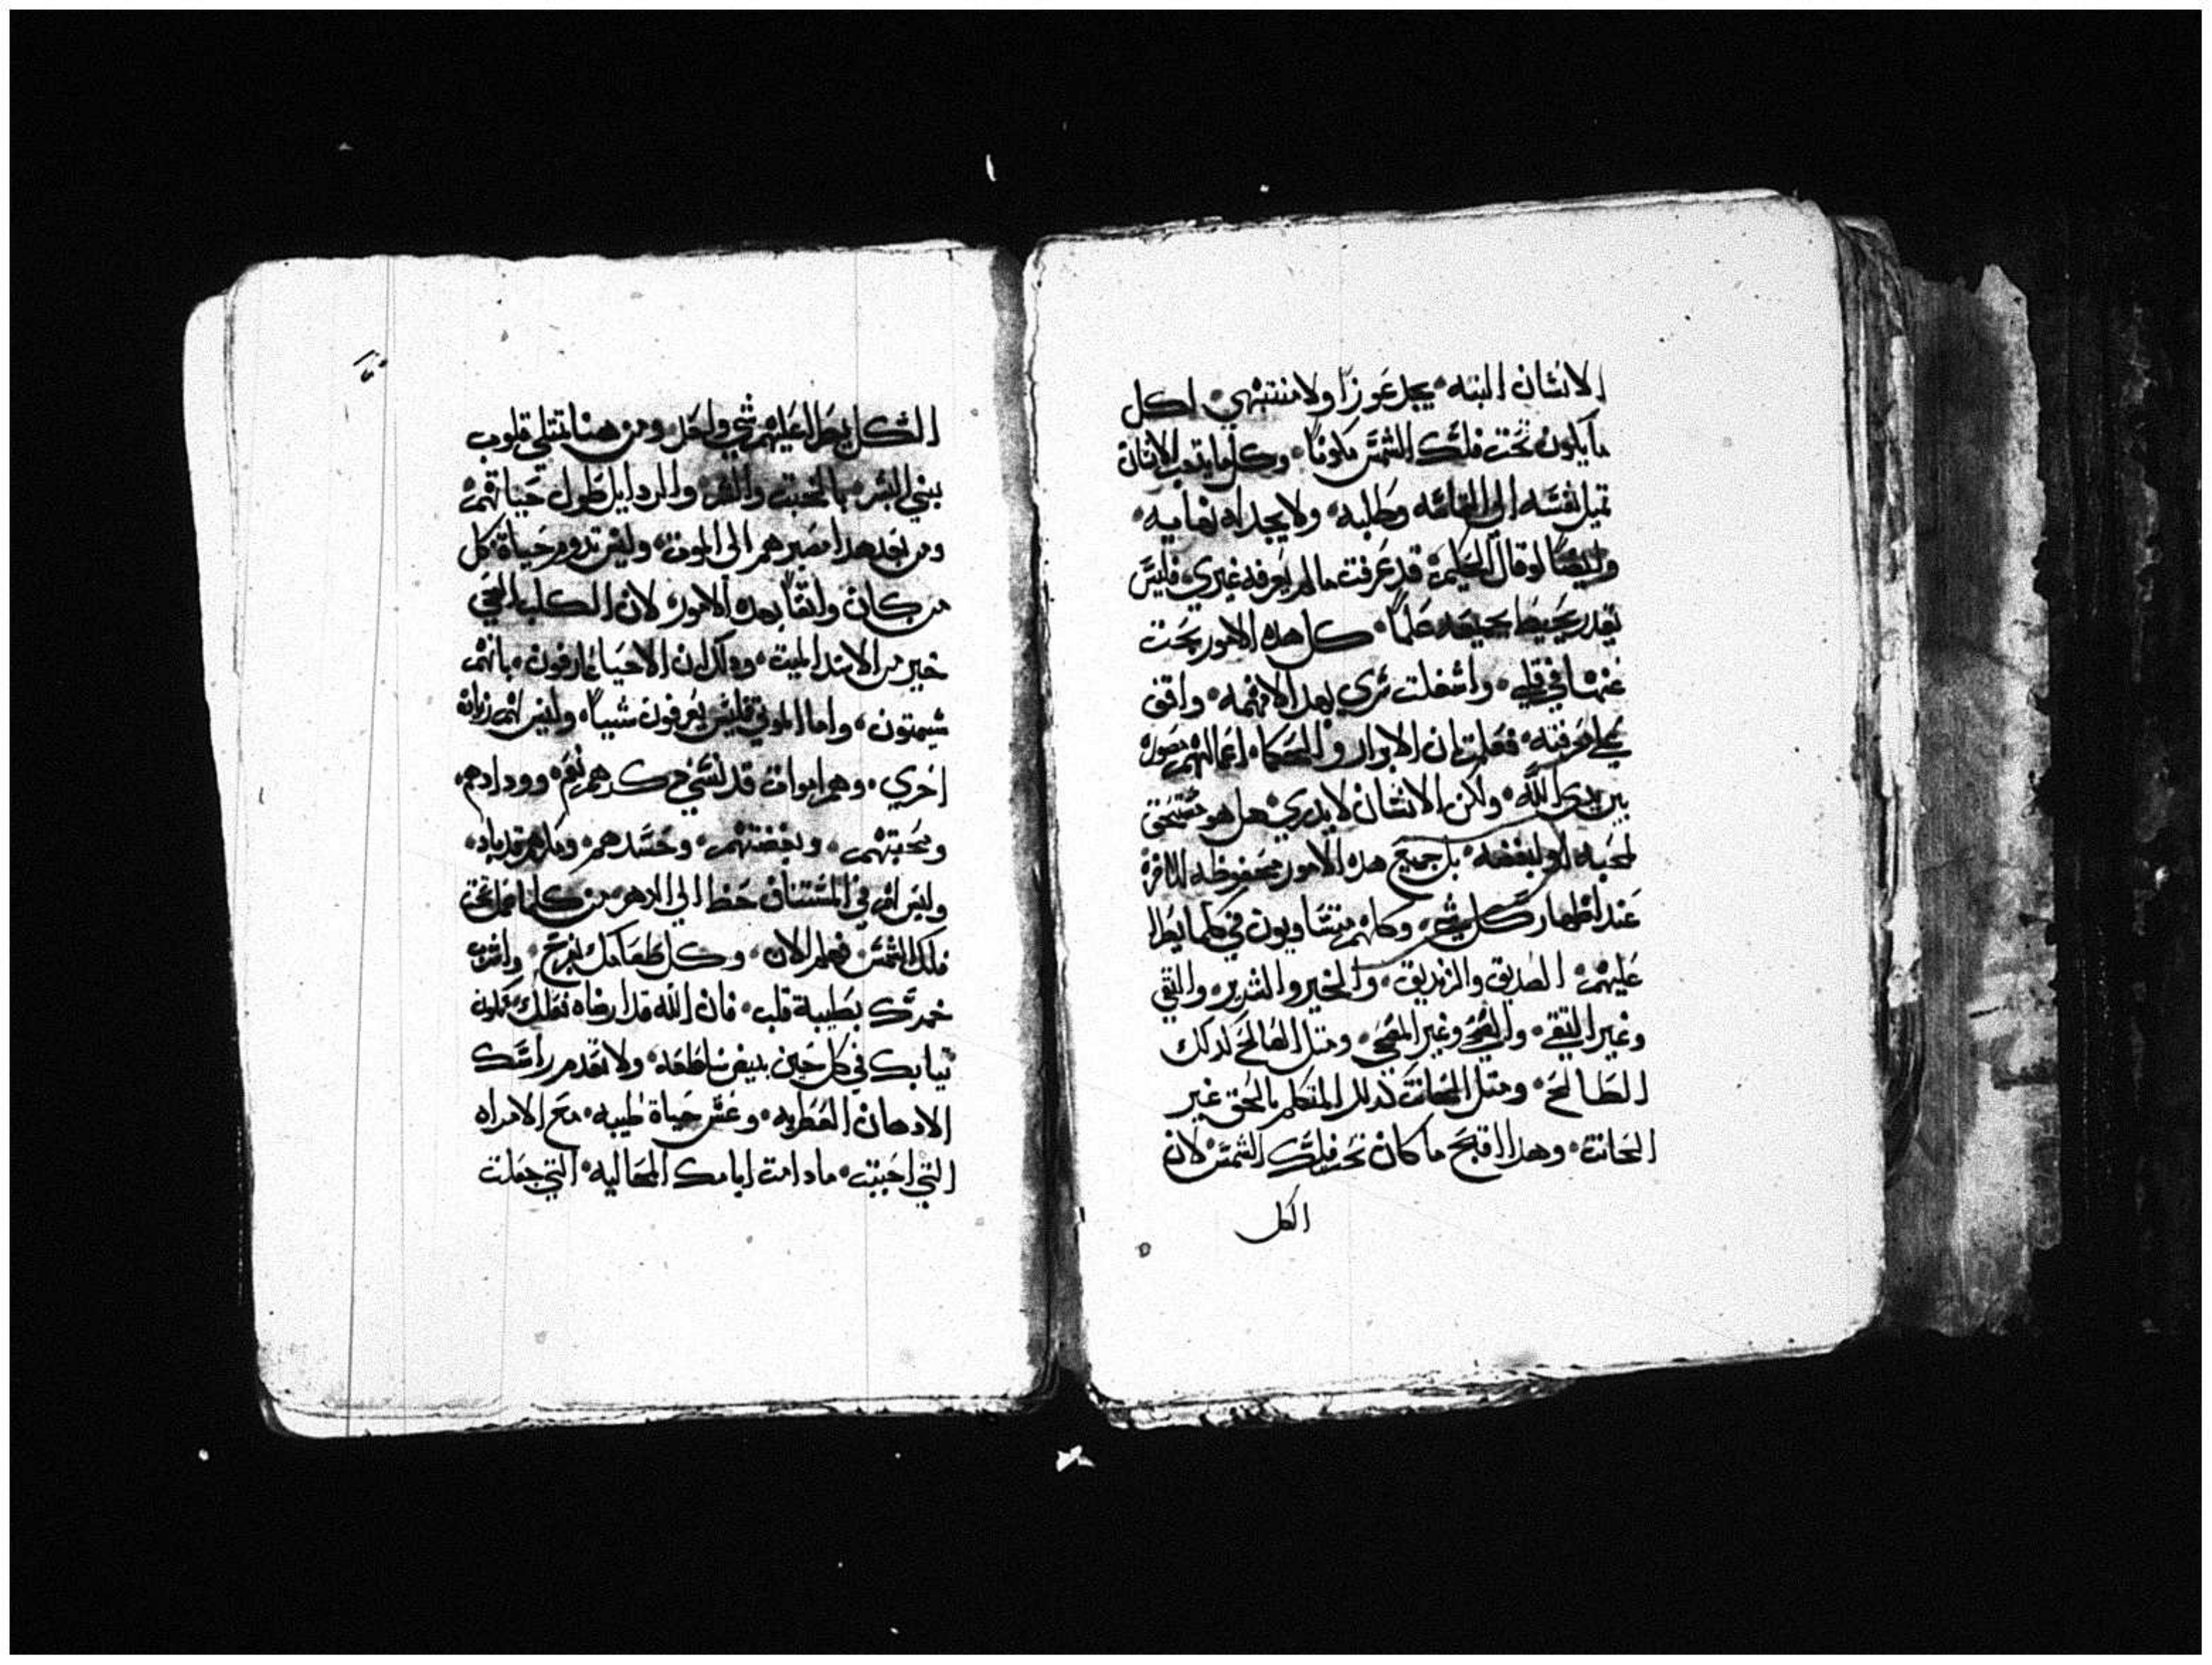 الانسان البته يجد عوزا ولا منتهي لكل
ما يكون تحت فلك الشمس مكونا وكل ما يتعب الانسان
تميل نفسه الي التماسه وطلبه ولا يجد له نهايه
وايضا لو قال الحكيم قد عرفت ما لم يعرفه غيري فليس
يقدر يحيط بجميعه علما كل هذه الامور بحثت
عنها في قلبي واشغلت سري بهذا لافهمه واقف
علي معرفته فعلمت ان الابرار والحكما اعمالهم محصوره
بين يدي الله ولكن الانسان لا يدري هل هو مستحق
لمحبه او لبغضه بل جميع هذه الامور محفوظه للاخره
عند اظهار كل شي وكلهم متساويون في كلما يطرا
عليهم الصديق والزنديق والخير والشرير والنقي
وغير النقي والمضحي وغير المضحي ومثل الصالح كذلك
الطالح ومثل الحانت كذلك المتكلم بالحق غير
الحانت وهذا اقبح ما كان تحت فلك الشمس لان
الكل
الكل يطرا عليهم شي واحد ومن هنا تمتلي قلوب
بني البشر بالخبث والشر والردايل طول حياتهم
ومن بعد هذا مصيرهم الي الموت وليس تدوم حياة كل
من كان واثقا بهذه الامور لان الكلب الحي
خير من الاسد الميت وذلك ان الاحيا عارفون بانهم
سيموتون واما الموتي فليس يعرفون شييا وليس لهم زياده
اخري وهم اموات قد نسي ذكرهم نعم وودادهم
ومحبتهم وبغضتهم وحسدهم وكلهم قد باد
وليس لهم في المستناف حظ الي الدهر من كلما عمل تحت
فلك الشمس فهلم الان وكل طعامك بفرح واشرب
خمرك بطيبة قلب فان الله قد ارضاه فعلك فلتكون
تيابك في كل حين بيض ساطعه ولا تعدم راسك
الادهان العطريه وعش حياة طيبه مع الامراه
التي احببت ما دامت ايامك المحاليه التي جعلت